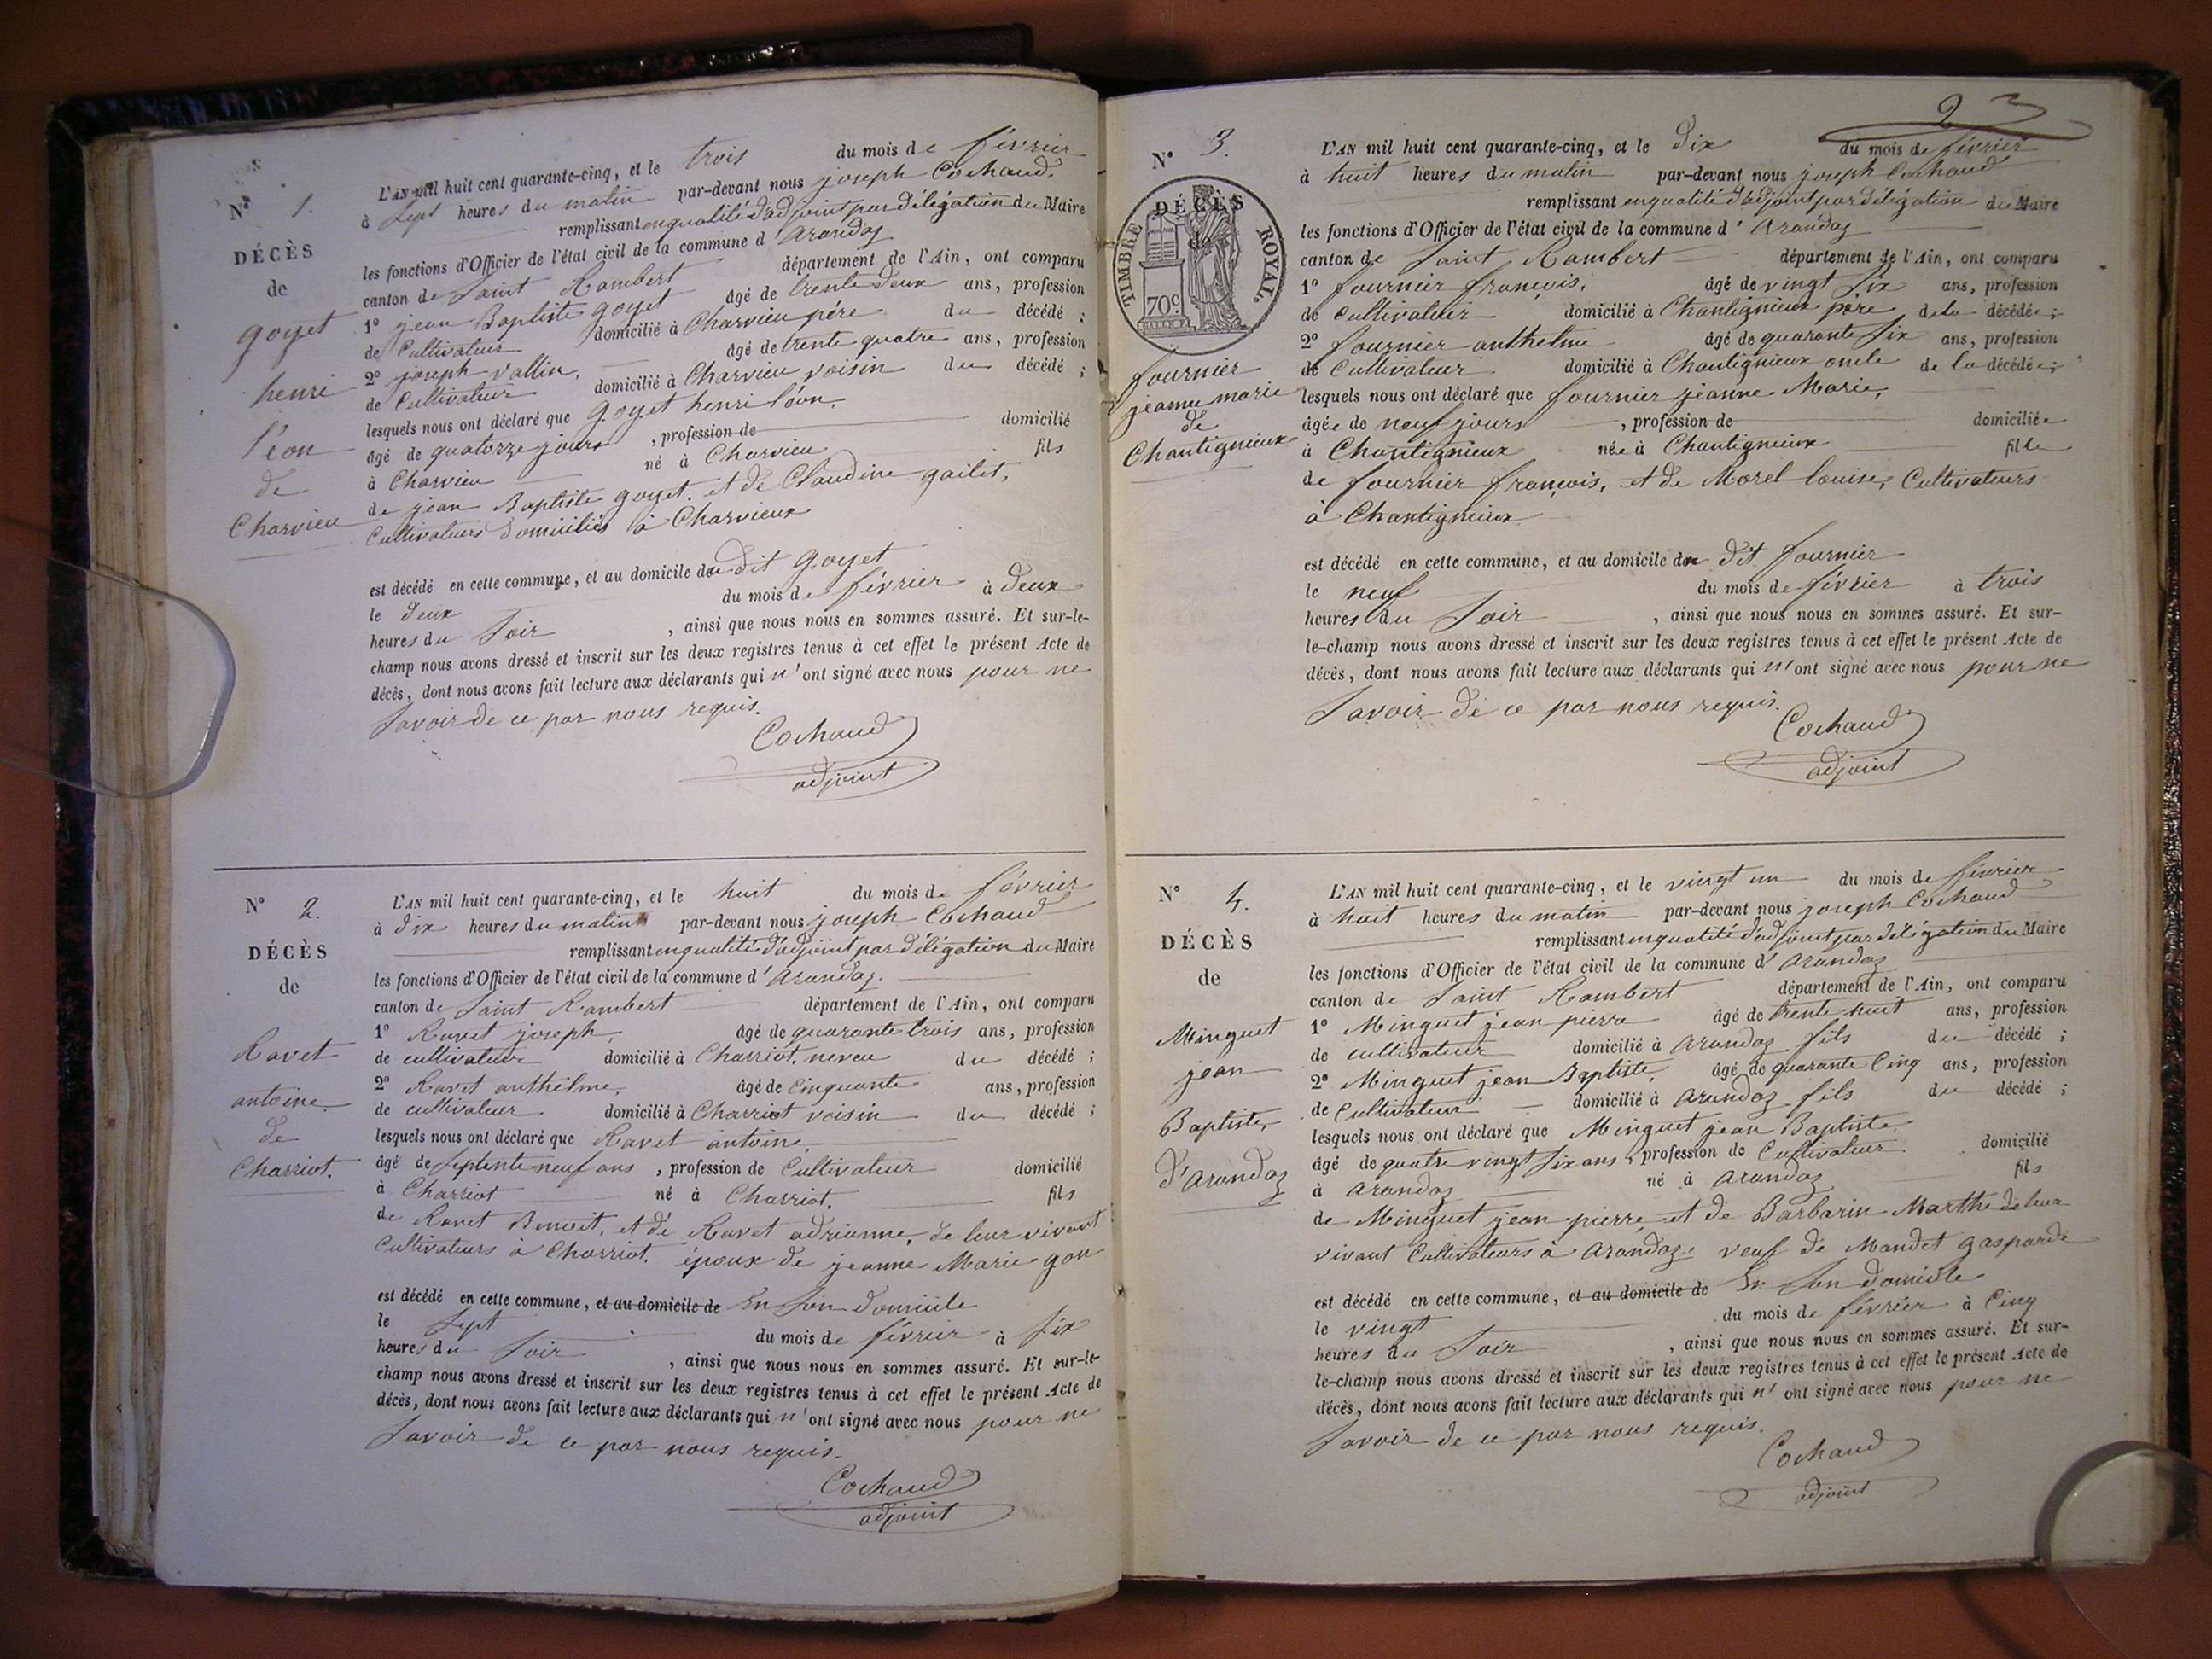 N° 1.
DÉCÈS
de
goyet
henri
léon
de
Charvieu
L'AN mil huit cent quarante-cinq, et le trois du mois de février
à sept heures du matin par-devant nous joseph Cochaud.
remplissant en qualité d'adjoint par délégation du Maire
les fonctions d'Officier de l'état civil de la commune d'Arandaz
canton de Saint Rambert département de l'Ain, ont comparu
1° jean Baptiste goyet âgé de trente deux ans, profession
de Cultivateur domicilié à Charvieu père du décédé ;
2° joseph vallin, âgé de trente quatre ans, profession
de Cultivateur domicilié à Charvieu voisin du décédé ;
lesquels nous ont déclaré que goyet henri léon,
âgé de quatorze jours , profession de domicilié
à Charvieu né à Charvieu fils
de jean Baptiste goyet. et de Claudine gailet,
Cultivateurs domiciliés à Charvieux
est décédé en cette commune, et au domicile du dit goyet
le deux du mois de février à deux
heures du soir , ainsi que nous nous en sommes assuré. Et sur-le-
champ nous avons dressé et inscrit sur les deux registres tenus à cet effet le présent Acte de
décès, dont nous avons fait lecture aux déclarants qui n'ont signé avec nous pour ne
savoir de ce par nous requis.
Cochaud
adjoint
N° 2.
DÉCÈS
de
Ravet
antoine
de
Charriot.
L'AN mil huit cent quarante-cinq, et le huit du mois de février
à dix heures du matin par-devant nous joseph Cochaud
remplissant en qualité d'adjoint par délégation du Maire
les fonctions d'Officier de l'état civil de la commune d'Arandaz.
canton de Saint Rambert département de l'Ain, ont comparu
1° Ravet joseph, âgé de quarante trois ans, profession
de cultivateur domicilié à Charriot, neveu du décédé ;
2° Ravet anthelme, âgé de cinquante ans, profession
de cultivateur domicilié à Charriot voisin du décédé ;
lesquels nous ont déclaré que Ravet antoine
âgé de septente neuf ans , profession de Cultivateur domicilié
à Charriot né à Charriot. fils
de Ravet Benoit, et de Ravet adrianne, de leur vivant
Cultivateurs à Charriot. époux de jeanne Marie gon
est décédé en cette commune, et au domicile de En son domicile
le sept du mois de février à six
heures du soir , ainsi que nous nous en sommes assuré. Et sur-le-
champ nous avons dressé et inscrit sur les deux registres tenus à cet effet le présent Acte de
décès, dont nous avons fait lecture aux déclarants qui n'ont signé avec nous pour ne
savoir de ce par nous requis.
Cochaud
adjoint
2
N° 3.
DÉCÈS
de
TIMBRE ROYAL.
70c.
fournier
jeanne marie
de
Chantignieux
L'AN mil huit cent quarante-cinq, et le dix du mois de février
à huit heures du matin par-devant nous joseph Cochaud
remplissant en qualité d'adjoint par délégation du Maire
les fonctions d'Officier de l'état civil de la commune d'Arandaz
canton de Saint Rambert département de l'Ain, ont comparu
1° fournier françois, âgé de vingt six ans, profession
de Cultivateur domicilié à Chantignieux père de la décédée ;
2° fournier anthelme âgé de quarante six ans, profession
de Cultivateur domicilié à Chantignieux oncle de la décédée ;
lesquels nous ont déclaré que fournier jeanne Marie,
âgée de neuf jours , profession de domiciliée
à Chantignieux née à Chantignieux fille
de fournier françois, et de Morel louise, Cultivateurs
à Chantignieux
est décédé en cette commune, et au domicile du dit fournier
le neuf du mois de février à trois
heures du soir , ainsi que nous nous en sommes assuré. Et sur-
le-champ nous avons dressé et inscrit sur les deux registres tenus à cet effet le présent Acte de
décès, dont nous avons fait lecture aux déclarants qui n'ont signé avec nous pour ne
savoir de ce par nous requis.
Cochaud
adjoint
N° 4.
DÉCÈS
de
Minguet
jean
Baptiste,
d'Arandaz
L'AN mil huit cent quarante-cinq, et le vingt un du mois de février
à huit heures du matin par-devant nous joseph Cochaud
remplissant en qualité d'adjoint par délégation du Maire
les fonctions d'Officier de l'état civil de la commune d'Arandaz
canton de Saint Rambert département de l'Ain, ont comparu
1° Minguet jean pierre âgé de trente huit ans, profession
de cultivateur domicilié à Arandaz fils du décédé ;
2° Minguet jean Baptiste, âgé de quarante Cinq ans, profession
de Cultivateur domicilié à Arandaz fils du décédé ;
lesquels nous ont déclaré que Minguet jean Baptiste
âgé de quatre vingt six ans , profession de Cultivateur domicilié
à Arandaz né à Arandaz fils
de Minguet jean pierre et de Barbarin Marthe de leur
vivant Cultivateurs à Arandaz. veuf de Mandet gasparde
est décédé en cette commune, et au domicile de En son domicile
le vingt du mois de février à Cinq
heures du soir , ainsi que nous nous en sommes assuré. Et sur-
le-champ nous avons dressé et inscrit sur les deux registres tenus à cet effet le présent Acte de
décès, dont nous avons fait lecture aux déclarants qui n'ont signé avec nous pour ne
savoir de ce par nous requis.
Cochaud
adjoint